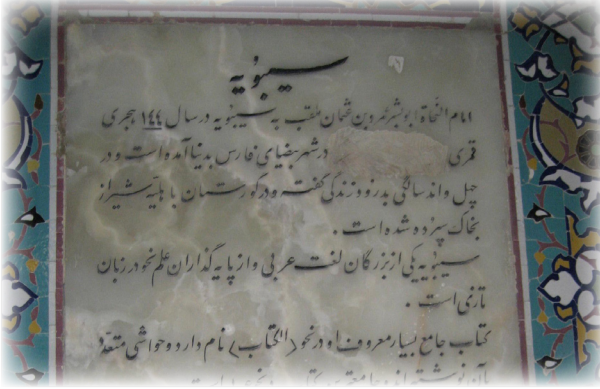 سیبویه
امام النحاة ابوبشر عمرو بن عثمان ملقب به سیبویه در سال ۱۴۴ هجری
قمری در شهر بیضای فارس بدنیا آمده است و در
چهل و اند سالگی بدرود زندگی گفته و در گورستان باهلیه شیراز
بخاک سپرده شده است .
سیبویه یکی از بزرگان لغت عربی و از پایه گذاران علم نحو در زبان
تازی است .
کتاب جامع بسیار معروف او در نحو (الکتاب) نام دارد و حواشی متعدد